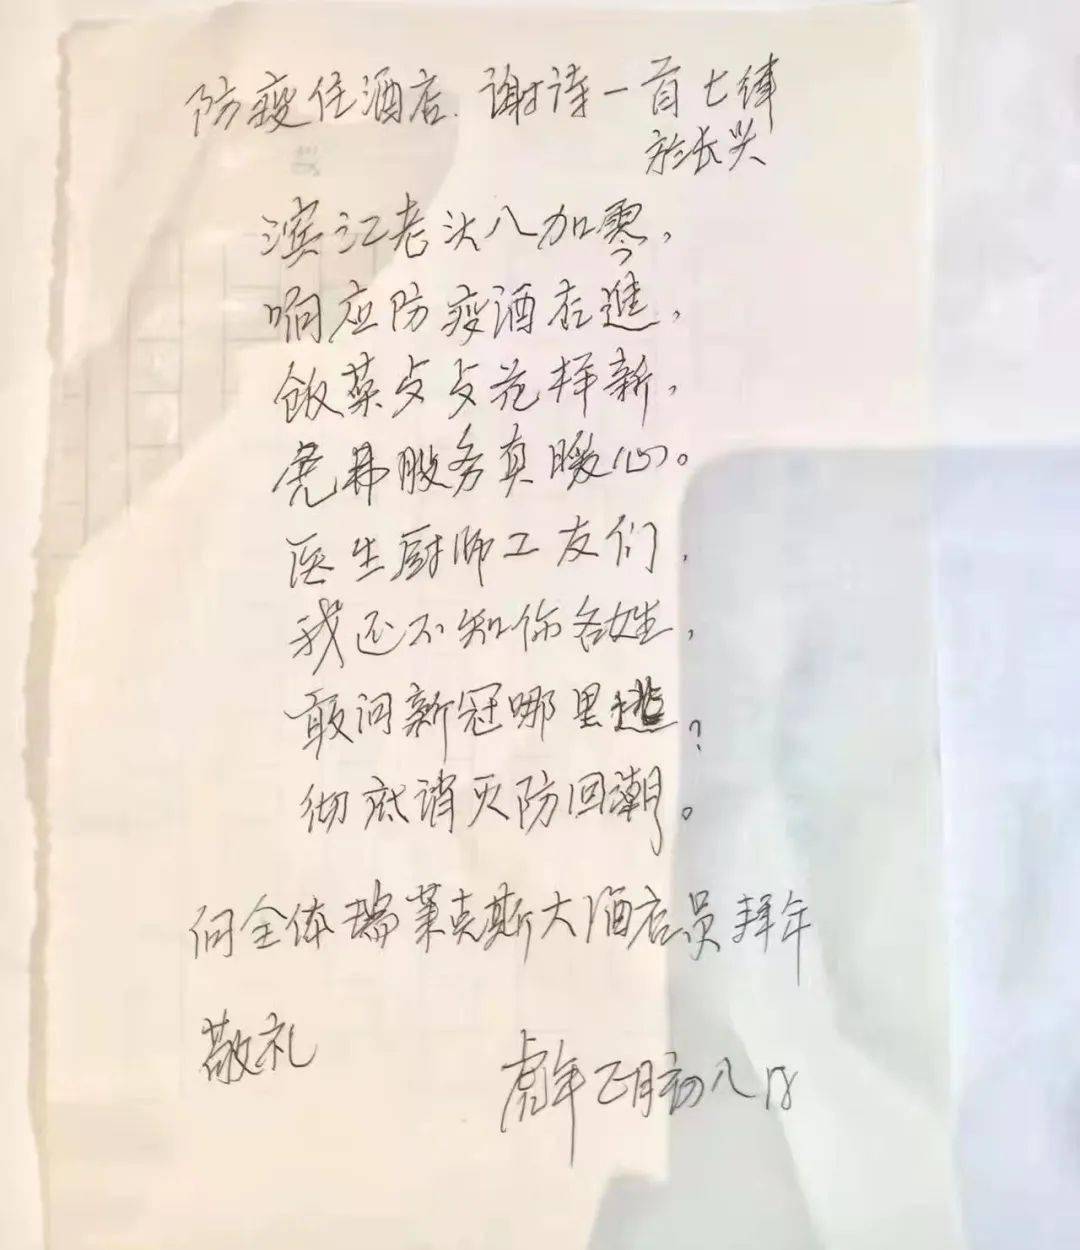 防疫住酒店.谢诗一首七律
长兴
滨江老头八加零,
响应防疫酒店進,
饭菜歺歺花样新,
服务真暖心。
医生厨师工友们,
我还不知你各姓,
敢问新冠哪里逃?
彻底消灭防回潮。
向全体瑞莱克斯大酒店员拜年
敬礼
虎年正月初八